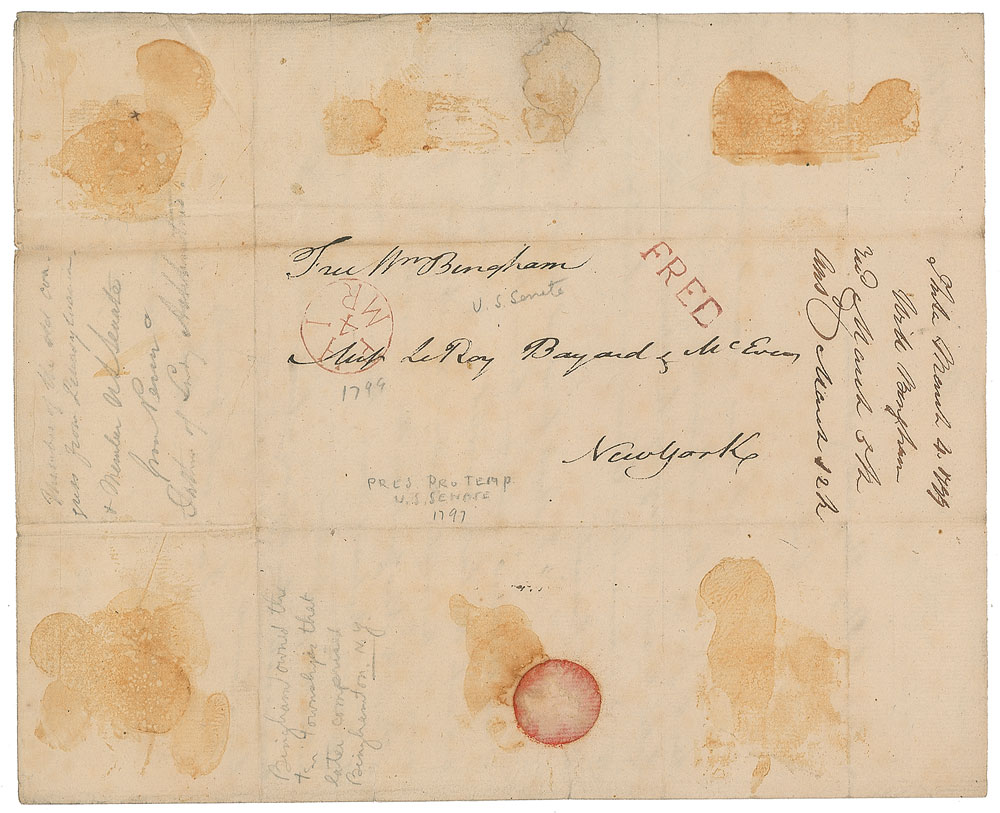 Free Wm Bingham
U.S. Senate
FRED
MR
4
Messrs LeRoy Bayard & McEvers
1799
New York
PRES. PRO TEMP.
U.S. SENATE
1797
Phila March 4. 1799
Wm Bingham
March 5th
March
Member of the old con-
gress from Pennsylvania
& Member US Senate
from Penn
Bingham owned the
ten townships that
later comprised
Binghamton N.Y.